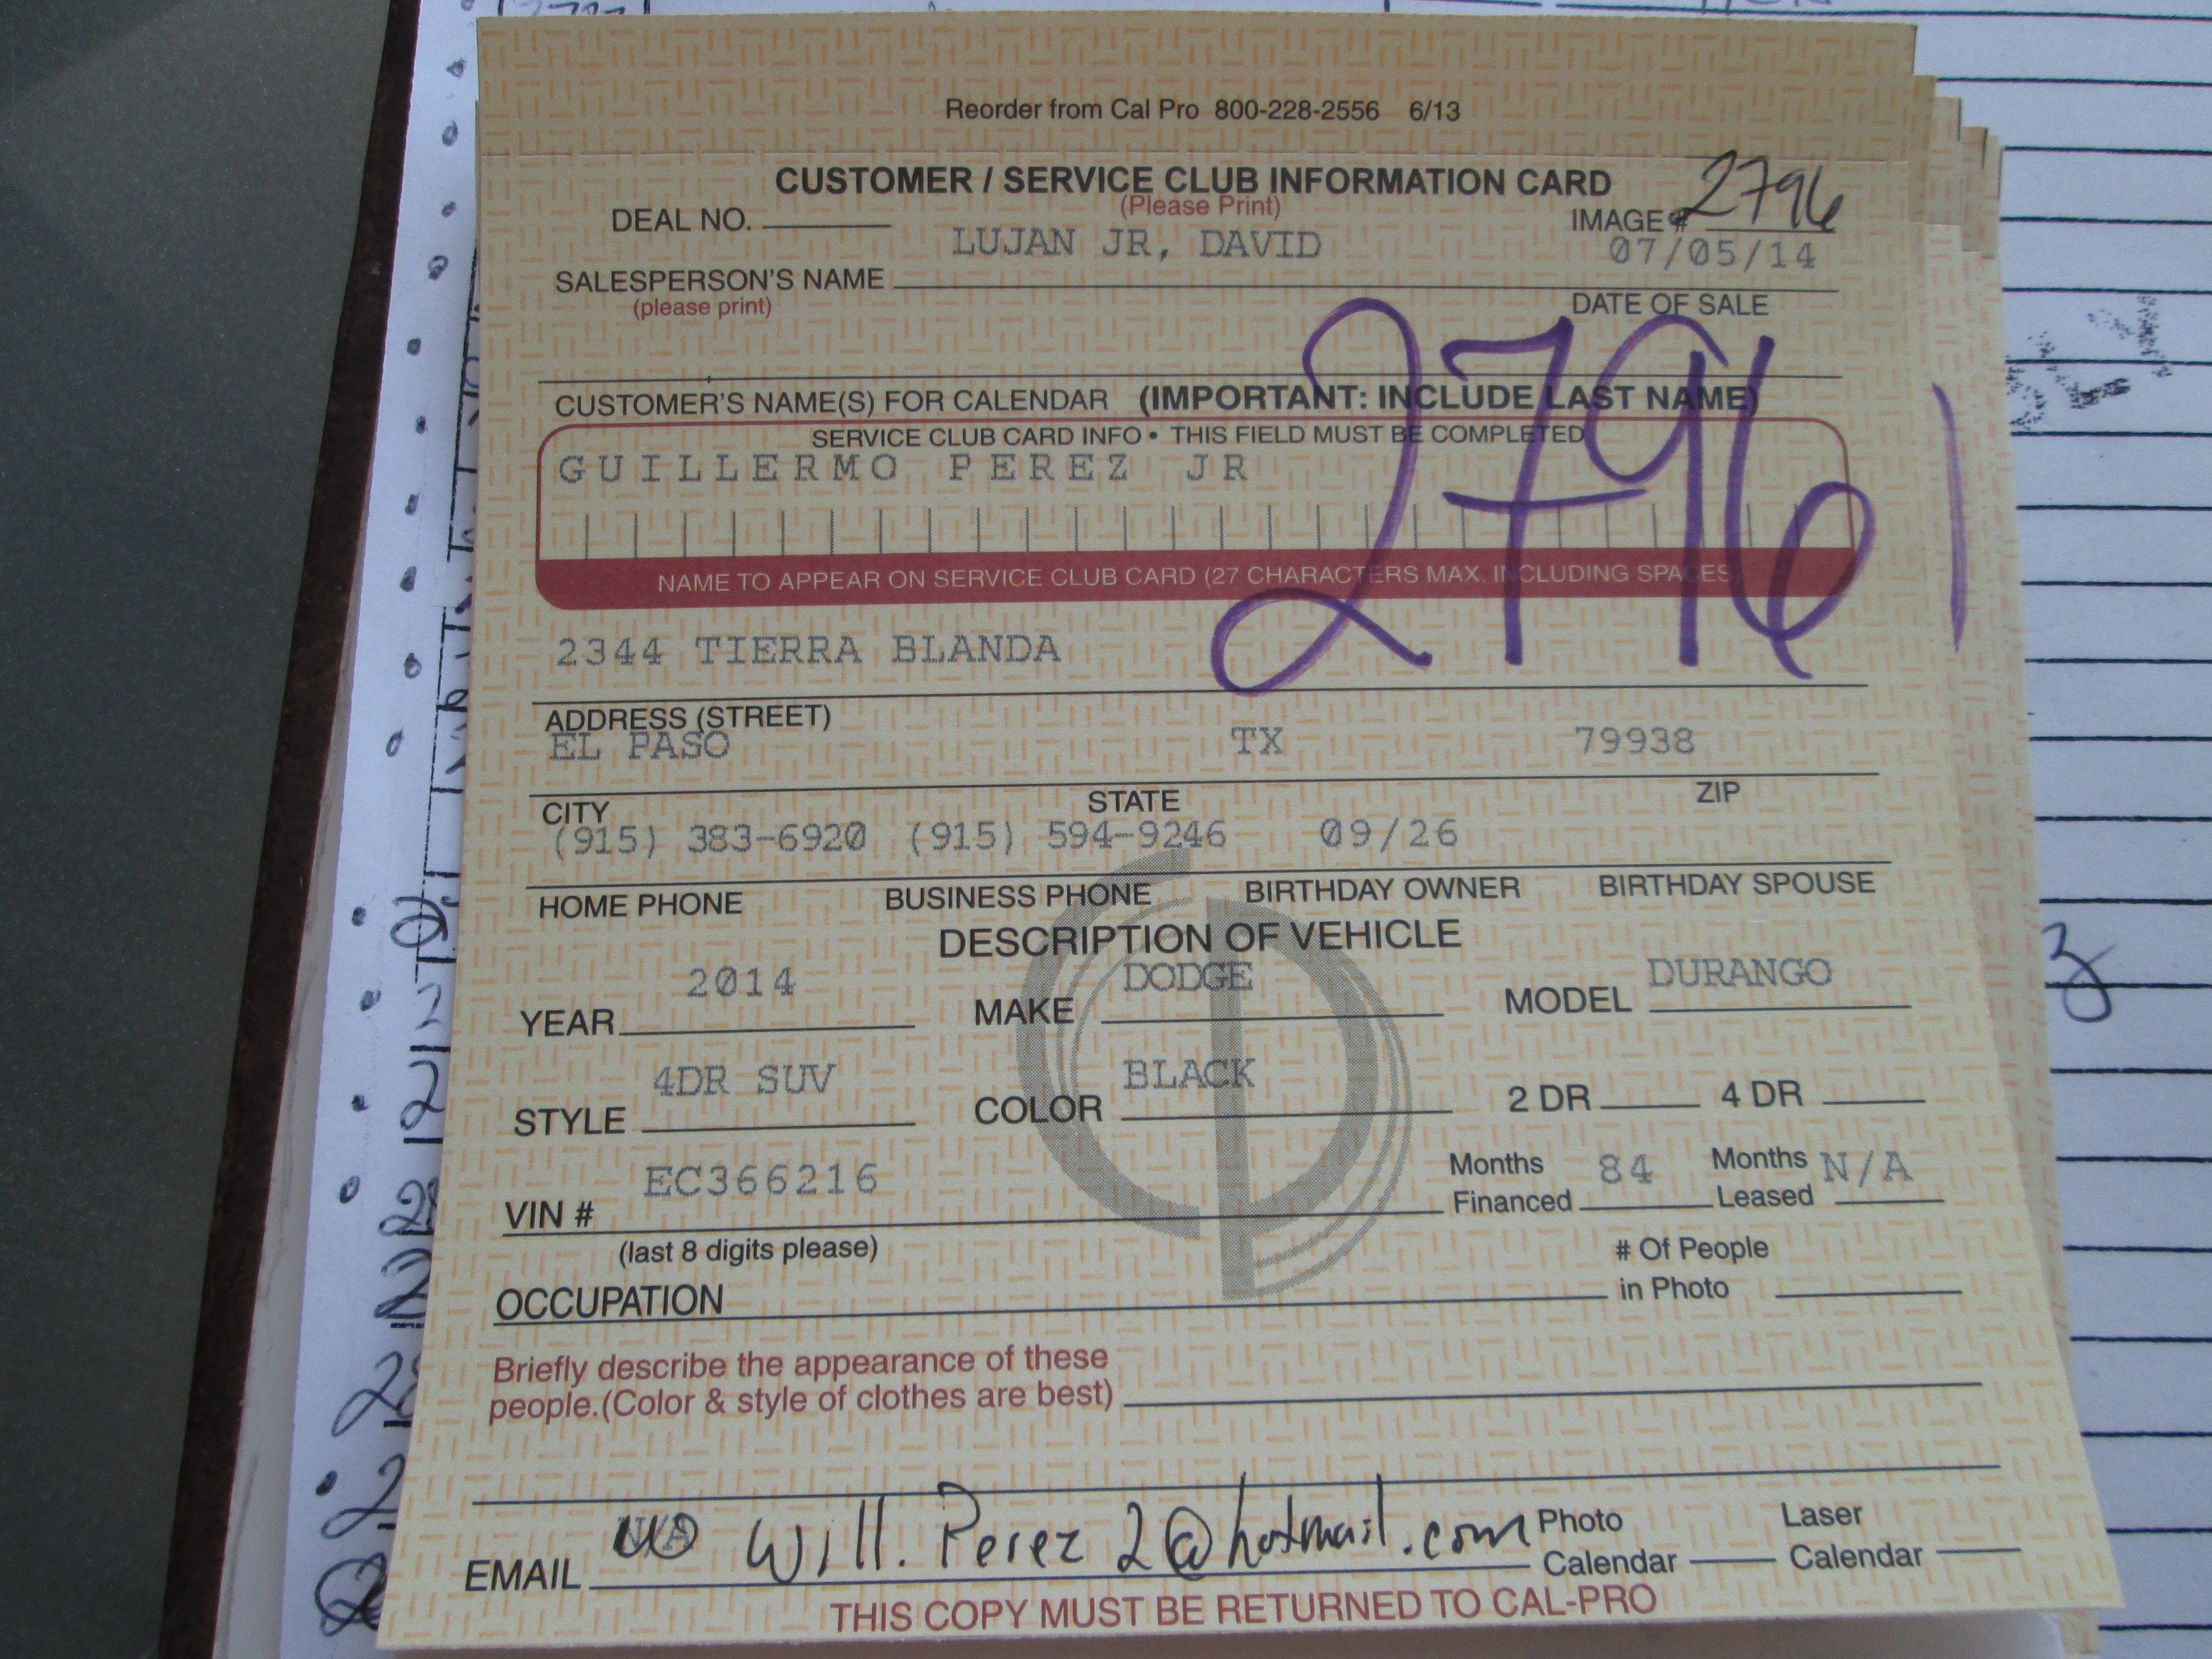 Reorder from Cal Pro 800-228-2556 6/13
CUSTOMER / SERVICE CLUB INFORMATION CARD
(Please Print)
DEAL NO. IMAGE # 2796
LUJAN JR, DAVID 07/05/14
SALESPERSON'S NAME
(please print) DATE OF SALE
2796
CUSTOMER'S NAME(S) FOR CALENDAR (IMPORTANT: INCLUDE LAST NAME)
SERVICE CLUB CARD INFO • THIS FIELD MUST BE COMPLETED
GUILLERMO PEREZ JR
NAME TO APPEAR ON SERVICE CLUB CARD (27 CHARACTERS MAX. INCLUDING SPACES)
2344 TIERRA BLANDA
ADDRESS (STREET)
EL PASO TX 79938
CITY STATE ZIP
(915) 383-6920 (915) 594-9246 09/26
HOME PHONE BUSINESS PHONE BIRTHDAY OWNER BIRTHDAY SPOUSE
DESCRIPTION OF VEHICLE
YEAR 2014 MAKE DODGE MODEL DURANGO
STYLE 4DR SUV COLOR BLACK 2 DR 4 DR
VIN # EC366216 Months Financed 84 Months Leased N/A
(last 8 digits please)
OCCUPATION # Of People in Photo
Briefly describe the appearance of these
people.(Color & style of clothes are best)
EMAIL N/A Will.Perez2@hotmail.com Photo Calendar Laser Calendar
THIS COPY MUST BE RETURNED TO CAL-PRO